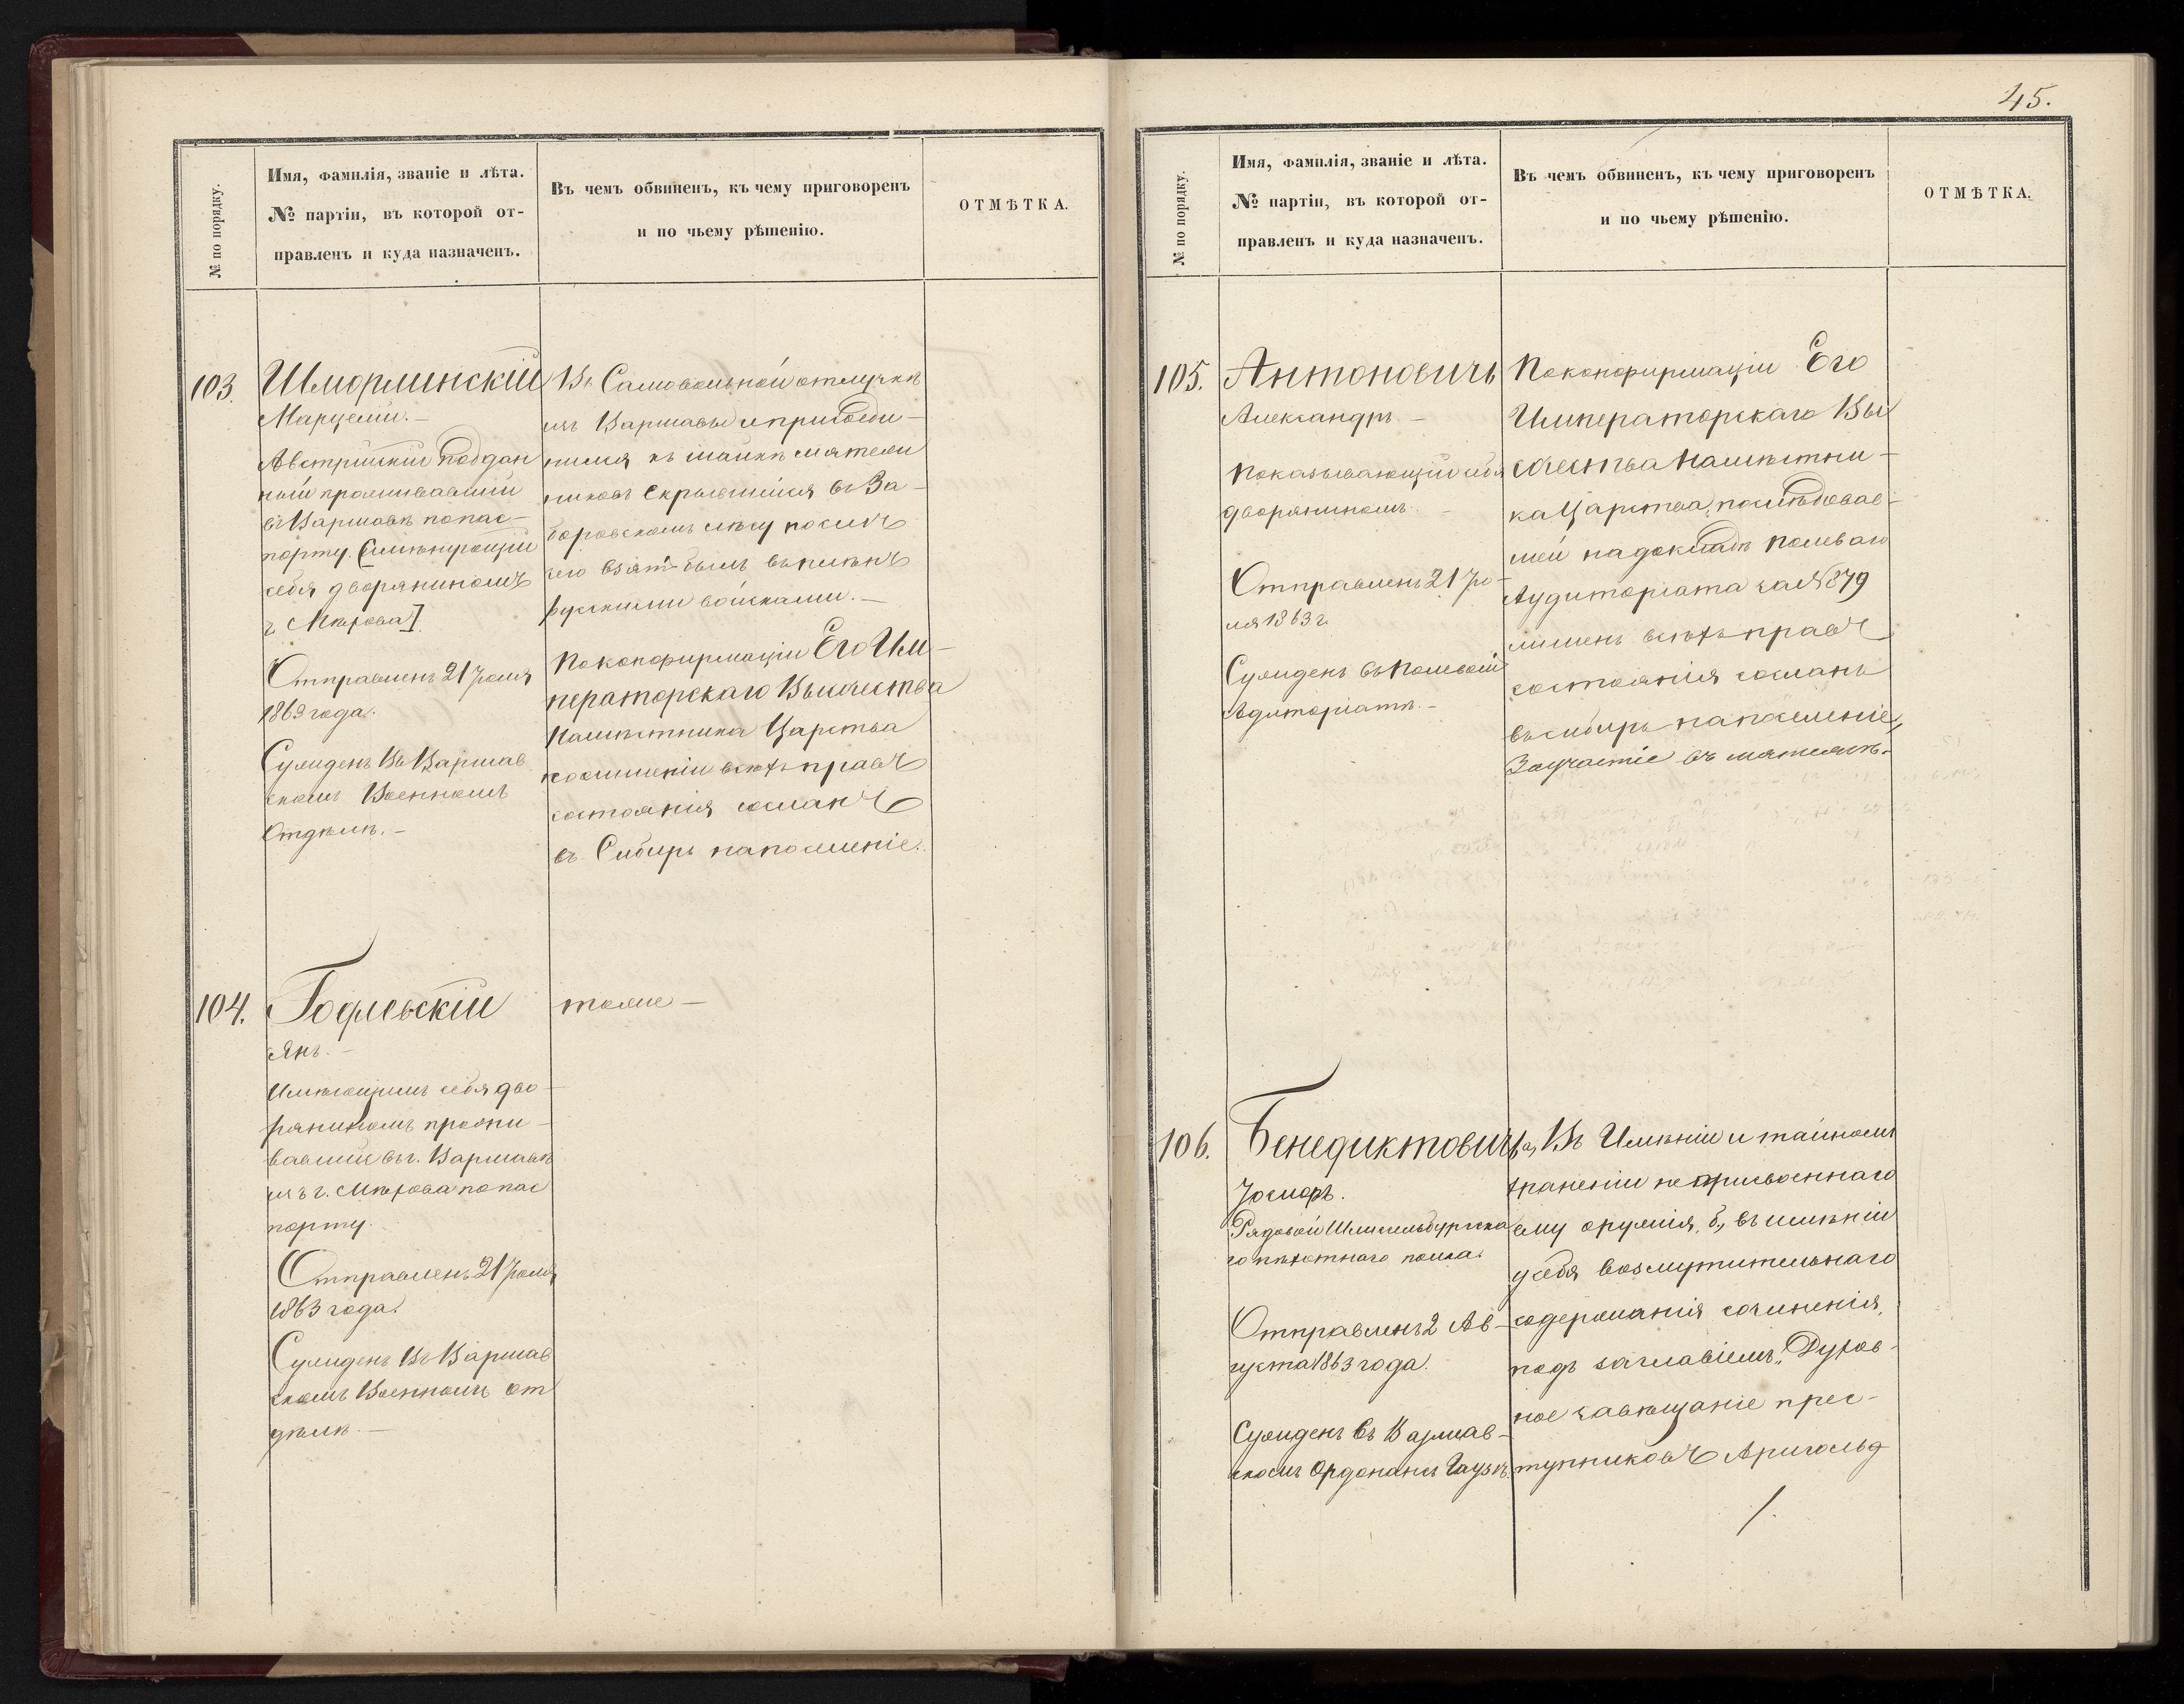 № по порядку.
Имя, фамилія, званіе и лѣта.
№ партіи, въ которой от-
правленъ и куда назначенъ.
Въ чемъ обвиненъ, къ чему приговоренъ
и по чьему рѣшенію.
ОТМѢТКА.
103.
Шморлинскій
Марцелій. —
Австрійскій поддан
ный проживавшій
въ Варшавѣ по пас-
порту. [именующій
себя дворяниномъ
г.
Отправленъ 21 Іюля
1863 года.
Сужденъ Въ Варшав
скомъ Военномъ
Отдѣлѣ. —
Въ Самовольной отлучкѣ
изъ Варшавы и присоеди-
нился къ шайкѣ мятежни
никовъ скрывшійся въ За-
боровскомъ лѣсу послѣ
чего взятъ былъ въ плѣнъ
русскими войсками. —
По конфирмаціи Его Им-
ператорскаго Высочества
Намѣстника Царства
по лишеніи всѣхъ правъ
состоянія сосланъ
въ Сибирь на поселеніе.
104.
Годлевскій
Янъ. —
себя дво-
ряниномъ прожи-
вавшій въ г. Варшавѣ
изъ г. по пас
порту.
Отправленъ 21 Іюля
1863 года.
Сужденъ Въ Варшав
скомъ Военномъ от
дѣлѣ. —
тоже —
45.
№ по порядку.
Имя, фамилія, званіе и лѣта.
№ партіи, въ которой от-
правленъ и куда назначенъ.
Въ чемъ обвиненъ, къ чему приговоренъ
и по чьему рѣшенію.
ОТМѢТКА.
105.
Антоновичъ
Александръ. —
Показывающій себя
дворяниномъ. —
Отправленъ 21 Ію-
ля 1863 г.
Сужденъ въ Полевомъ
Адиторіатѣ. —
По конфирмаціи Его
Императорскаго Вы
сочества Намѣстни-
ка Царства, послѣдовав-
шей на докладѣ Полеваго
Аудиторіата за № 879
лишенъ всѣхъ правъ
состоянія сосланъ
въ сибирь на поселеніе,
За участіе въ мятежѣ.
106.
Бенедиктовичъ
Іосифъ.
Рядовой Шлисельбургска
го пѣхотнаго полка.
Отправленъ 2 Ав-
густа 1863 года.
Сужденъ въ Варшав-
скомъ Ордонансъ Гаузѣ.
а, Въ Имѣніи и тайномъ
храненіи не присвоеннаго
ему оружія, б, въ имѣніи
у себя возмутительнаго
содержанія сочиненія,
подъ заглавіемъ „Духов-
ное завѣщаніе прес-
тупниковъ Арнгольд
/.